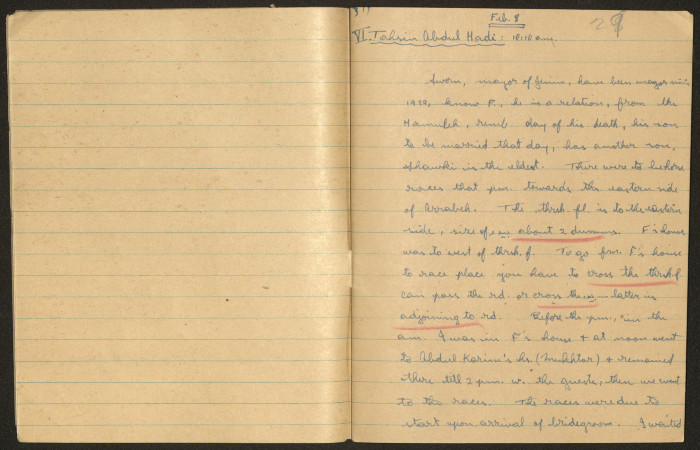 Feb. 8
29
VI. Tahsin Abdul Hadi: 10:10 am.
Sworn, mayor of Jenin, have been mayor
1922, know F., he is a relation, from the
Hamuleh, rem. day of his death, his son
to be married that day, has another son,
Shawki is the eldest. There were to be horse
races that pm. towards the eastern side
of Arrabeh. The thresh.fl. is to the eastern
side, size of about 2 dunums. F's house
was to west of thresh.f. To go from F.'s house
to race place you have to cross the thresh.f.
can pass the rd. or cross them - latter is
adjoining to rd. Before the pm., in the
am. I was in F's house + at noon went
to Abdul Karim's hs. (mukhtar) + remained
there till 2 pm. w. the guests, then we went
to the races. The races were due to
start upon arrival of bridegroom. I waited